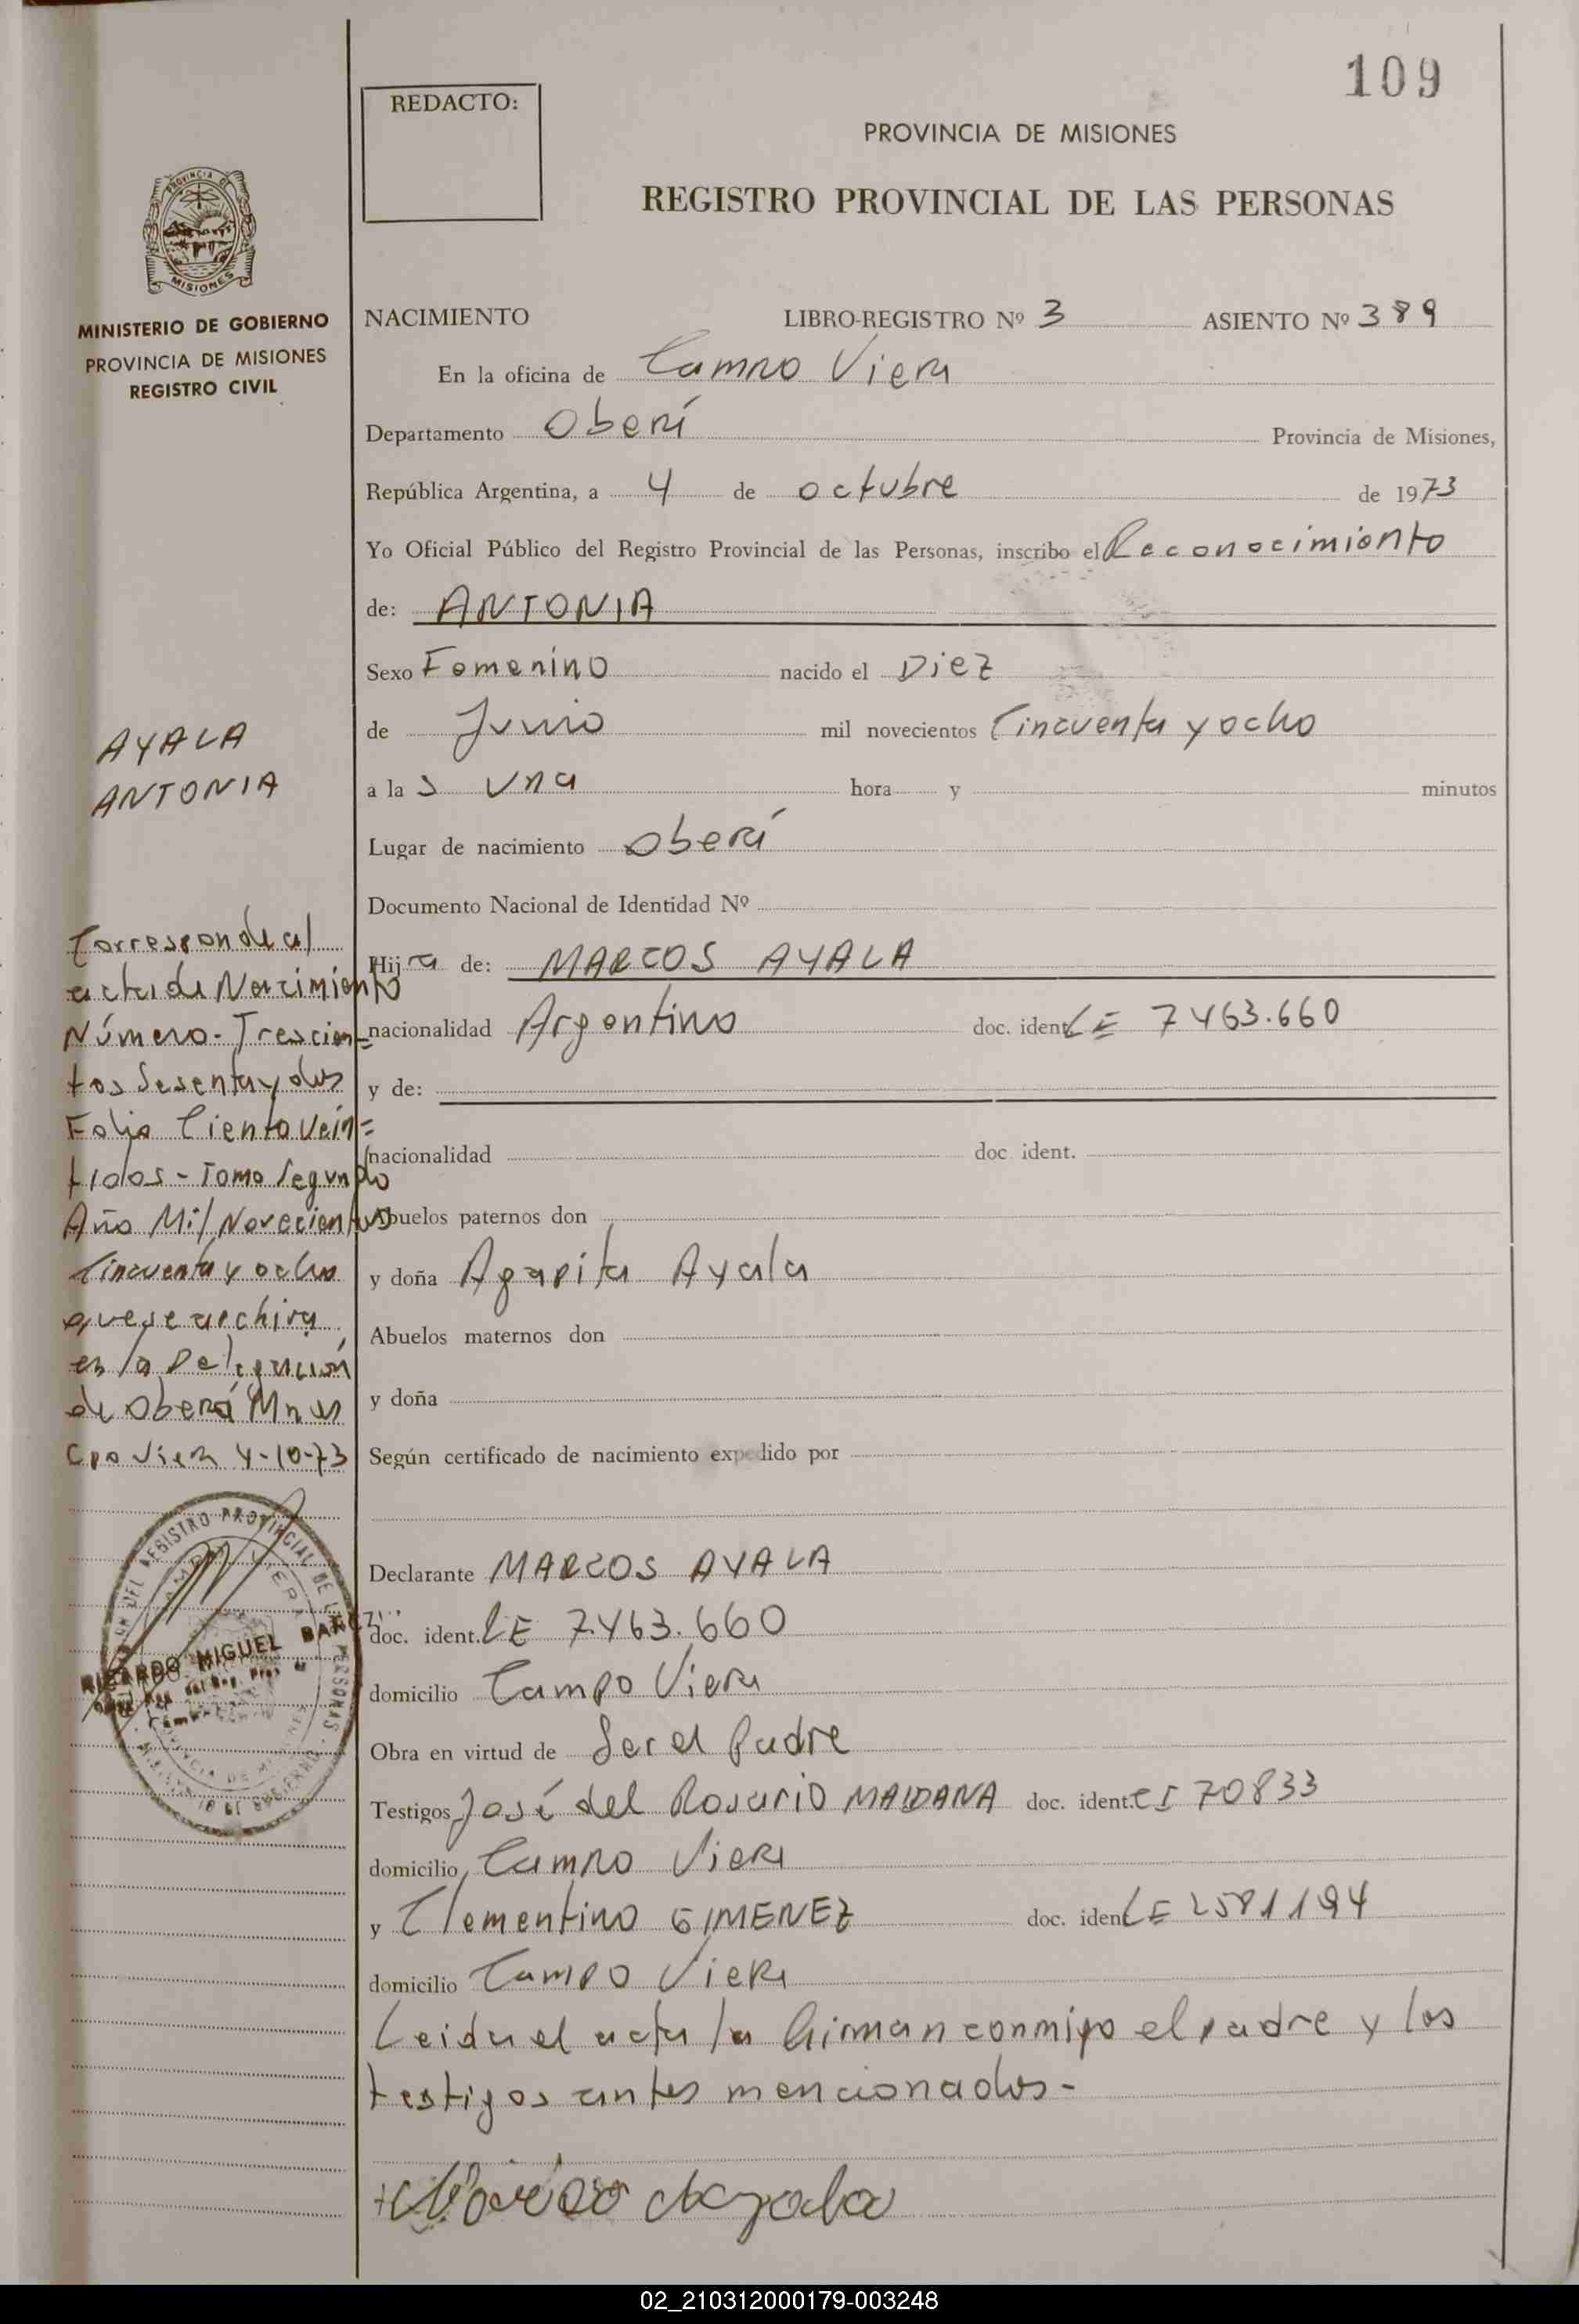 109
REDACTO:
PROVINCIA DE MISIONES
REGISTRO PROVINCIAL DE LAS PERSONAS
PROVINCIA DE
MISIONES
MINISTERIO DE GOBIERNO
PROVINCIA DE MISIONES
REGISTRO CIVIL
NACIMIENTO LIBRO-REGISTRO Nº 3 ASIENTO Nº 389
En la oficina de Campo Viera
Departamento Oberá Provincia de Misiones,
República Argentina, a 4 de octubre de 1973
Yo Oficial Público del Registro Provincial de las Personas, inscribo el Reconocimiento
de: ANTONIA
Sexo Femenino nacido el Diez
de Junio mil novecientos Cincuenta y ocho
a las una hora y minutos
Lugar de nacimiento Oberá
Documento Nacional de Identidad Nº
Hija de: MARCOS AYALA
nacionalidad Argentino doc. ident. LE 7463.660
y de:
nacionalidad doc. ident.
Abuelos paternos don
y doña Agapita Ayala
Abuelos maternos don
y doña
Según certificado de nacimiento expedido por
Declarante MARCOS AYALA
doc. ident. LE 7.463.660
domicilio Campo Viera
Obra en virtud de Ser el Padre
Testigos José del Rosario MAIDANA doc. ident. CI 70833
domicilio Campo Viera
y Clementino GIMENEZ doc. ident. LE 2581194
domicilio Campo Viera
Leida el acta la firman conmigo el padre y los
testigos antes mencionados-
Marcos Ayala
AYALA
ANTONIA
Corresponde al
acta de Nacimiento
Número-Trescien=
tos Sesenta y dos
Folio Ciento Vein=
tidos - Tomo Segundo
Año Mil Novecientos
Cincuenta y ocho
que se archiva
en la Delegación
de Oberá Mnes
Cpo Viera 4-10-73
DEL REGISTRO PROVINCIAL DE L PERSONAS
RICARDO MIGUEL
02_210312000179-003248